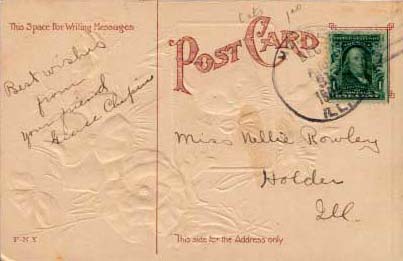 This Space For Writing Messages
Best wishes
from
your friend
George Chapin
P-N Y
POST CARD
ILL.
Miss Nellie Rowley
Holder
Ill.
This side for the Address only